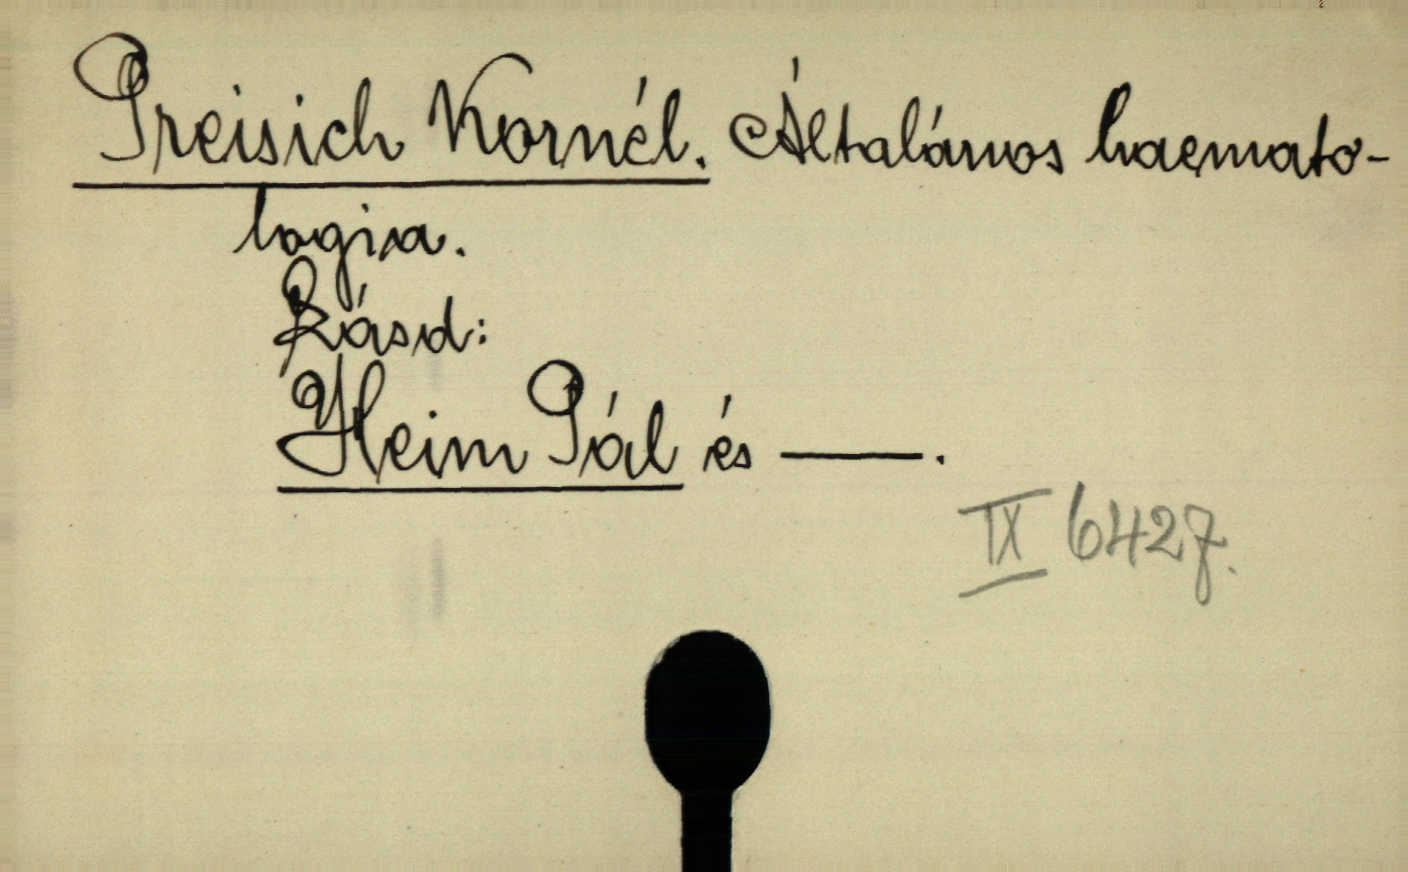 Preisich Kornél. Általános haemato-
logia.
Lásd:
Heim Pál és ——.
IX 6427.